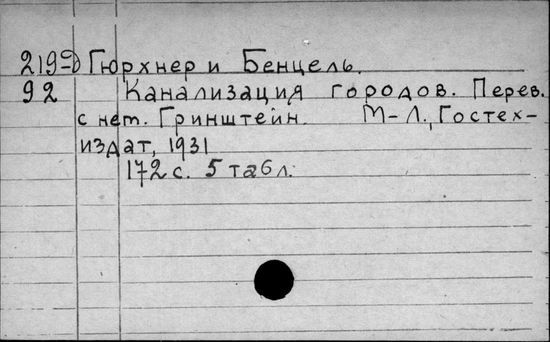 219-D Гюрхнер и Бенцель.
92 Канализация городов. Перев.
с нем. Гринштейн. М-Л., Гостех-
издат, 1931
172 с. 5 табл.